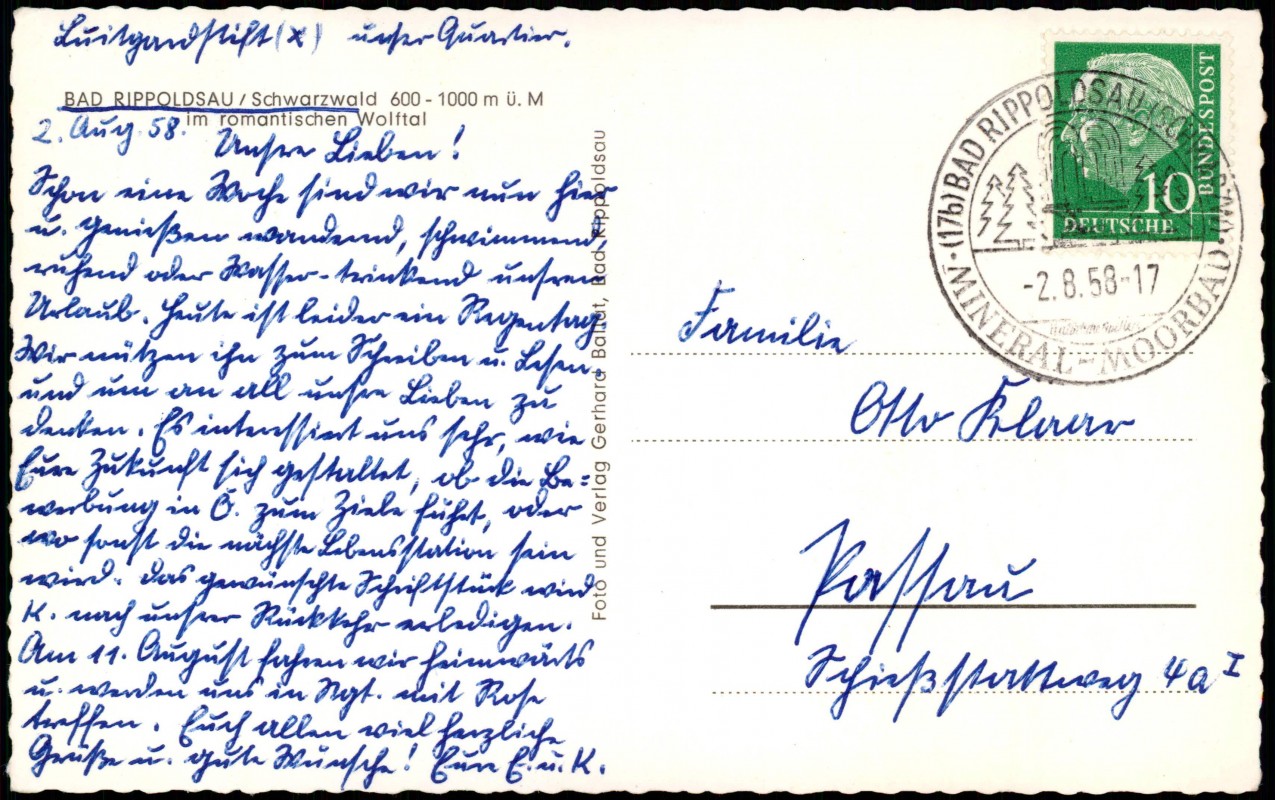 Luitgardstift (x) unser Quartier.
BAD RIPPOLDSAU / Schwarzwald 600 - 1000 m ü. M
im romantischen Wolftal
2. Aug. 58.
Unsre Lieben!
Schon eine Woche sind wir nun hier
u. genießen wandernd, schwimmend,
ruhend oder Wasser-trinkend unsren
Urlaub. Heute ist leider ein Regentag.
Wir nützen ihn zum Schreiben u. Lesen
und um an all unsre Lieben zu
denken. Es interessiert uns sehr, wie
Eure Zukunft sich gestaltet, ob die Be=
werbung in Ö. zum Ziele führt, oder
wo sonst die nächste Lebensstation sein
wird. Das gewünschte Schriftstück wird
K. nach unsrer Rückkehr erledigen.
Am 11. August fahren wir heimwärts
u. werden uns in Stgt. mit Rose
treffen. Euch allen viel herzliche
Grüße u. gute Wünsche! Eure E. u. K.
Foto und Verlag Gerhard Baldat, Bad Rippoldsau
DEUTSCHE
BUNDESPOST
10
(17b) BAD RIPPOLDSAU (SCHWARZWALD)
-2.8.58-17
MINERAL-MOORBAD
Familie
Otto Klaar
Passau
Schießstattweg 4a I